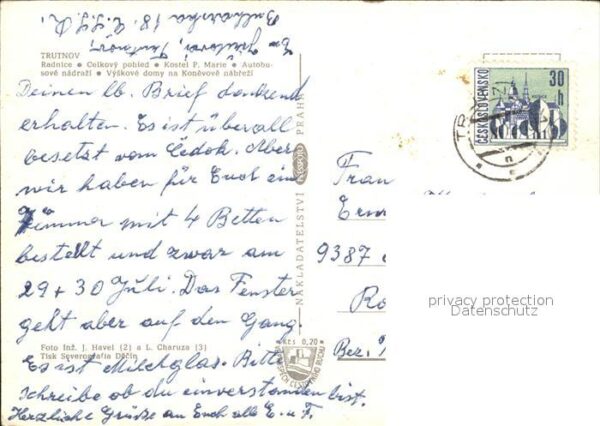 Bulharska 18. Č.S.S.R.
TRUTNOV
Radnice • Celkový pohled • Kostel P. Marie • Autobu-
sové nádraží • Výškové domy na Koněvově nábřeží
Deinen lb. Brief dankend
erhalten. Es ist überall
besetzt vom Cedok. Aber
wir haben für Euch ein
Zimmer mit 4 Betten
bestellt und zwar am
29 + 30 Juli. Das Fenster
geht aber auf den Gang.
Foto Inž. J. Havel (2) a L. Charuza (3)
Tisk Severografia Děčín
Es ist Milchglas. Bitte
schreibe ob du einverstanden bist.
Herzliche Grüße an Euch alle E. u. F.
NAKLADATELSTVÍ ORBIS PRAHA
Kčs 0,20
ČESKOSLOVENSKO
30 h
Fran
9387
Ro
Bez.
privacy protection
Datenschutz